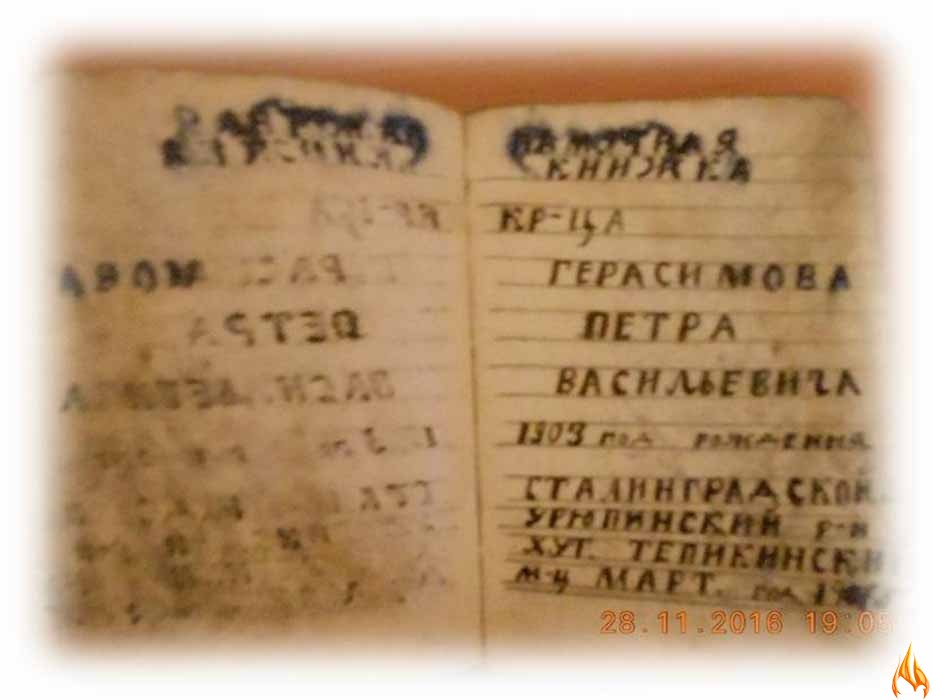 ПАМЯТНАЯ
КНИЖКА
КР-ЦА
ГЕРАСИМОВА
ПЕТРА
ВАСИЛЬЕВИЧА
1903 год рождения
СТАЛИНГРАДСКОЙ
УРЮПИНСКИЙ р-н
ХУТ. ТЕПИКИНСКИ
м-ц МАРТ. год
28.11.2016 19:05